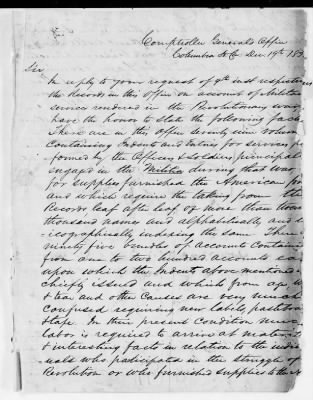 Comptroller Generals Office
Columbia S. C. Dec 19th 18
Sir
In reply to your request of 4th inst respecting
the Records in this office on account of Militia
service rendered in the Revolutionary war
have the honor to state the following facts
There are in this office seventy nine volumes
Containing Indents and Entries for services per
formed by the Officers & Soldiers, principally
engaged in the Militia during that war,
for supplies furnished the American
and which require the taking from the
Records leaf after leaf of more than
thousand names and alphabetically and
icographically indexing the same There
ninety five bundles of accounts contain
from one to two hundred accounts each
upon which the Indents above mentioned
chiefly issued and which from age, w
& tear and other causes are very much
confused requiring new labels, pasteboard
& tape. In their present condition much
labor is required to arrive at material
& interesting facts in relation to the indi
uals who participated in the struggle of
Revolution or who furnished supplies to the